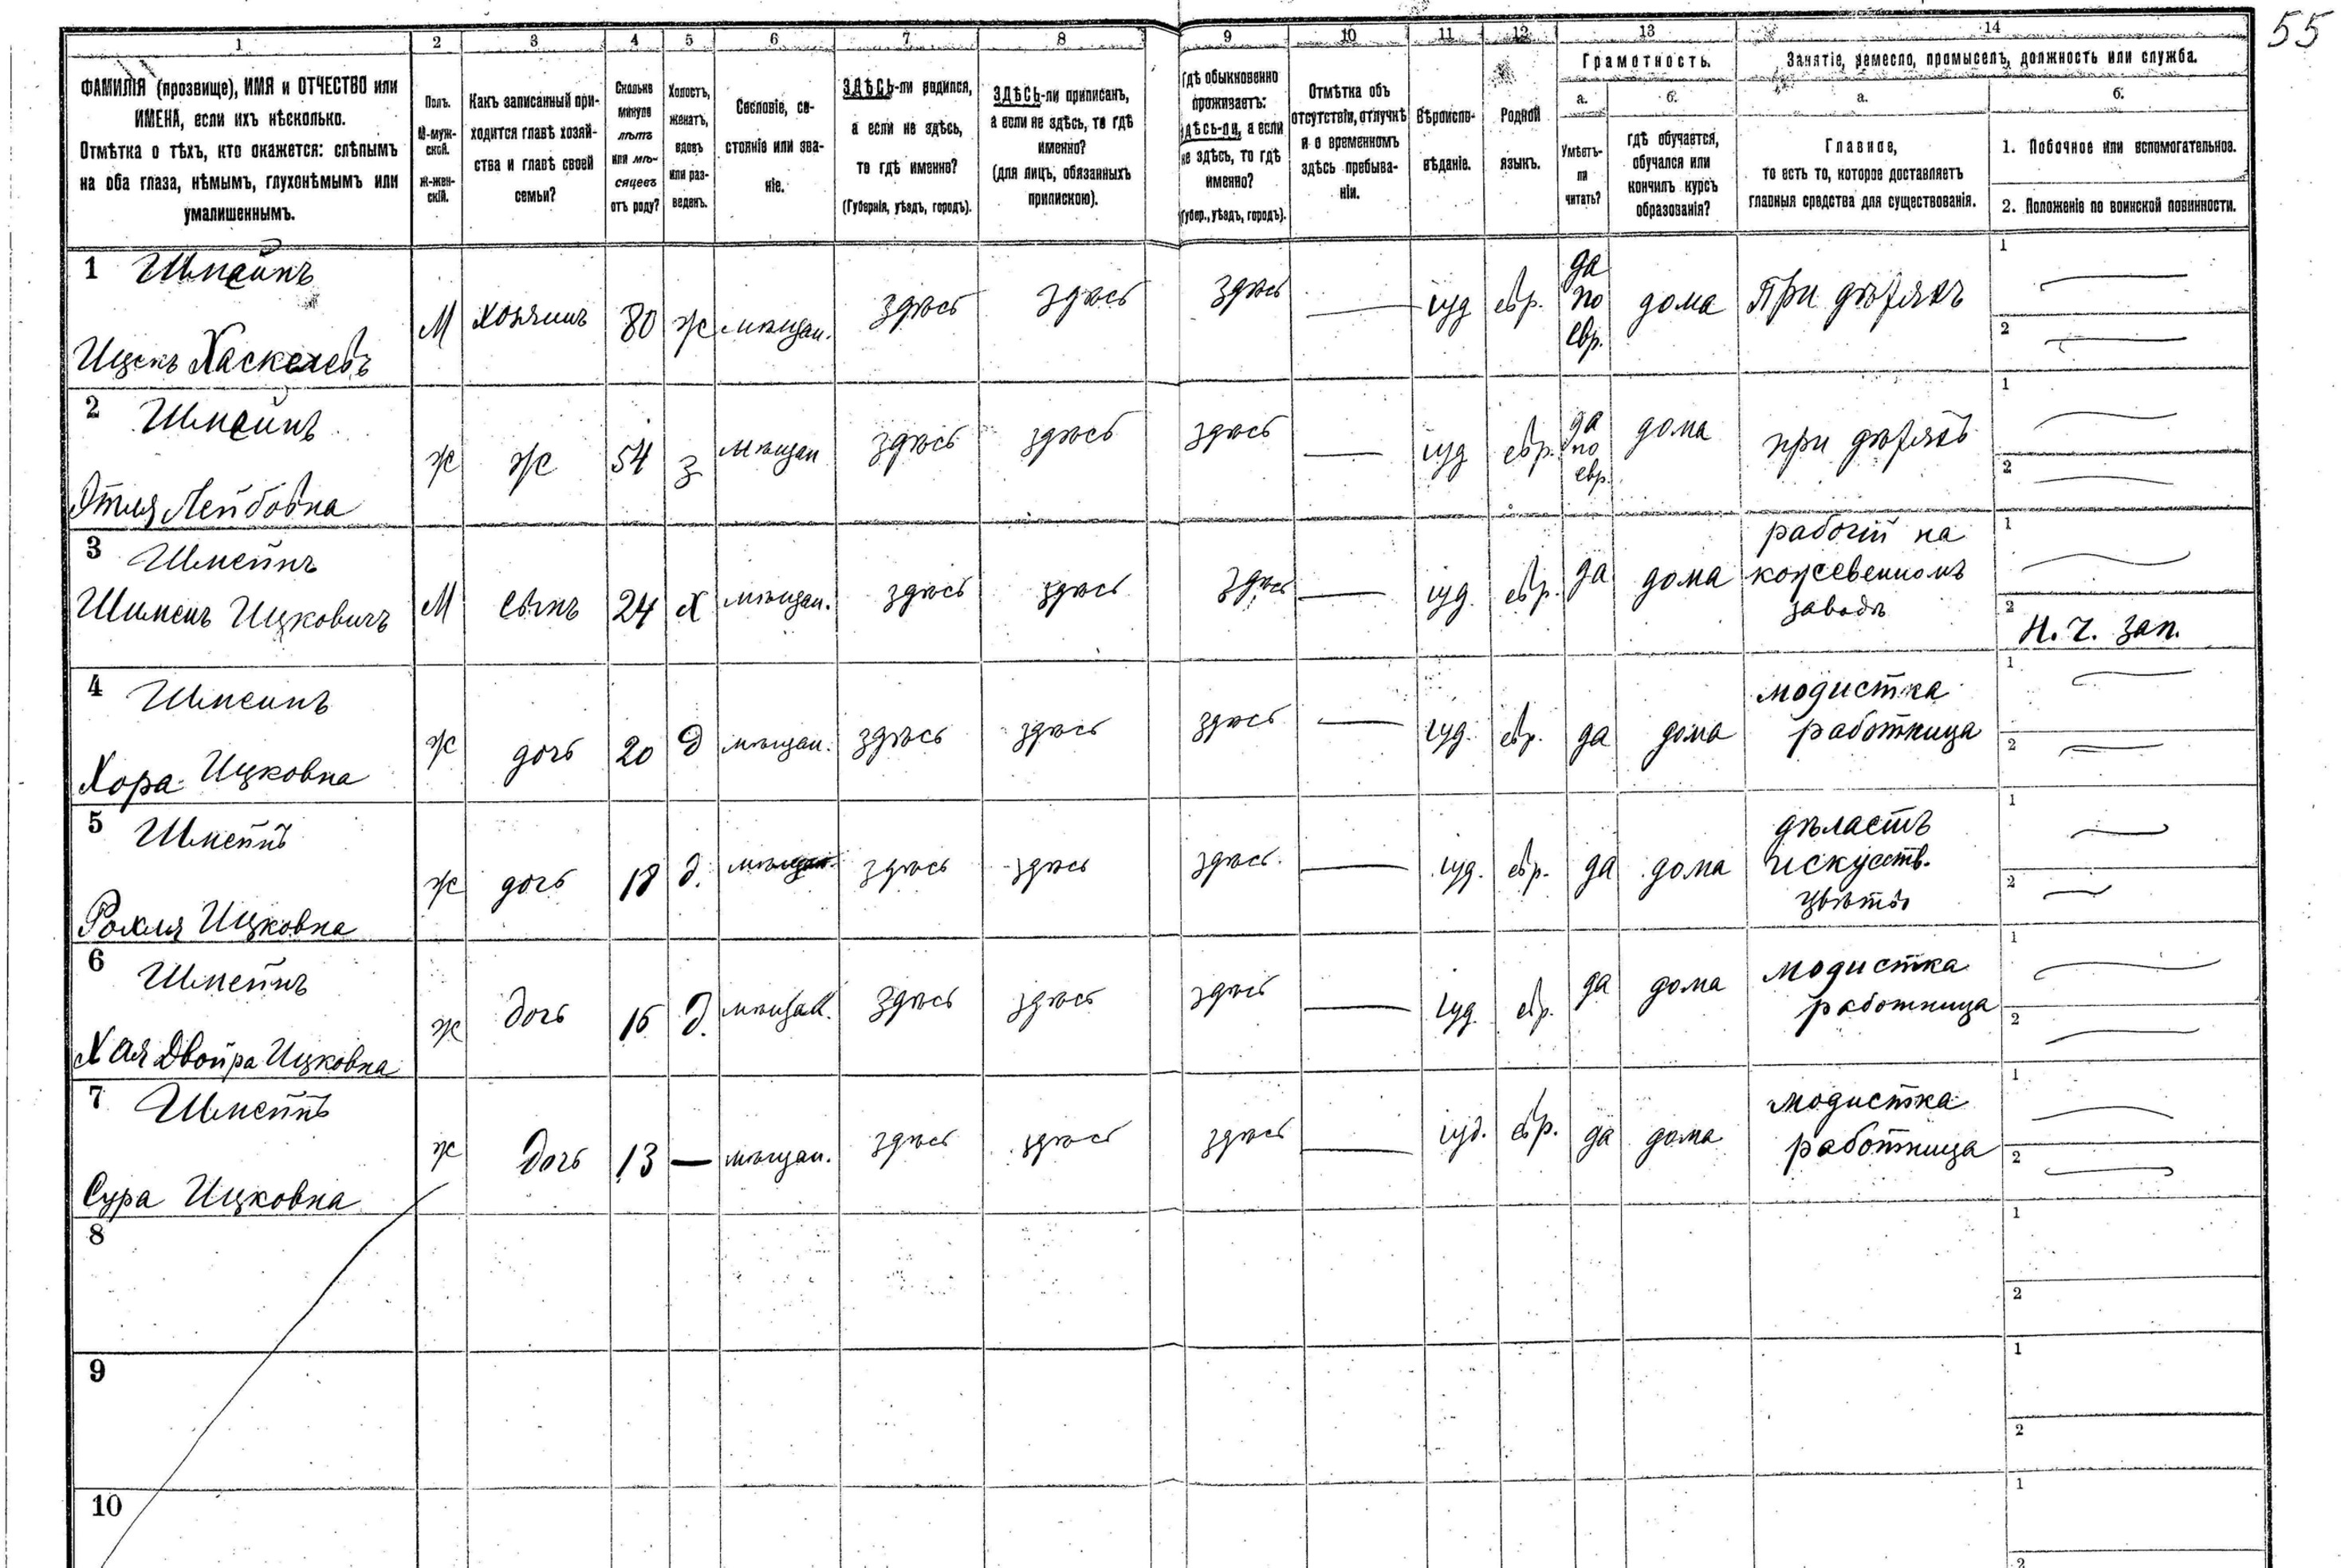 55
1 2 3 4 5 6 7 8 9 10 11 12 13 14
ФАМИЛІЯ (прозвище), ИМЯ и ОТЧЕСТВО или
ИМЕНА, если ихъ нѣсколько.
Отмѣтка о тѣхъ, кто окажется: слѣпымъ
на оба глаза, нѣмымъ, глухонѣмымъ или
умалишеннымъ.
Полъ.
М-муж-
ской.
Ж-жен-
скій.
Какъ записанный при-
ходится главѣ хозяй-
ства и главѣ своей
семьи?
Сколько
минуло
лѣтъ
или мѣ-
сяцевъ
отъ роду?
Холостъ,
женатъ,
вдовъ
или раз-
веденъ.
Сословіе, со-
стояніе или зва-
ніе.
ЗДѢСЬ-ли родился,
а если не здѣсь,
то гдѣ именно?
(Губернія, уѣздъ, городъ).
ЗДѢСЬ-ли приписанъ,
а если не здѣсь, то гдѣ
именно?
(для лицъ, обязанныхъ
припискою).
Гдѣ обыкновенно
проживаетъ:
здѣсь-ли, а если
не здѣсь, то гдѣ
именно?
(Губер., уѣздъ, городъ).
Отмѣтка объ
отсутствіи, отлучкѣ
и о временномъ
здѣсь пребыва-
ніи.
Вѣроиспо-
вѣданіе.
Родной
языкъ.
Грамотность.
а.
Умѣетъ-
ли
читать?
б.
гдѣ обучается,
обучался или
кончилъ курсъ
образованія?
Занятіе, ремесло, промыселъ, должность или служба.
а.
Главное,
то есть то, которое доставляетъ
главныя средства для существованія.
б.
1. Побочное или вспомогательное.
2. Положеніе по воинской повинности.
1 Шмейнъ
Ицекъ Хаскелевъ
М хозяинъ 80 ж мѣщан. здѣсь здѣсь здѣсь — іуд евр.
да
по
евр.
дома При дѣтяхъ
1 —
2 —
2 Шмейнъ
Этля Лейбовна
ж ж 54 з мѣщан здѣсь здѣсь здѣсь — іуд евр.
да
по
евр.
дома при дѣтяхъ
1 —
2 —
3 Шмейнъ
Шименъ Ицковичъ
М сынъ 24 х мѣщан. здѣсь здѣсь здѣсь — іуд. евр. да дома
рабочій на
кожевенномъ
заводѣ
1 —
2 Н. Ч. Зап.
4 Шмеинъ
Хора Ицковна
ж дочь 20 д мѣщан. здѣсь здѣсь здѣсь — іуд. евр. да дома
модистка
работница
1 —
2 —
5 Шмейнъ
Рохля Ицковна
ж дочь 18 д. мѣщан. здѣсь здѣсь здѣсь. — іуд. евр. да дома
дѣлаетъ
искуств.
цвѣты
1 —
2 —
6 Шмейнъ
Хая Двойра Ицковна
ж дочь 16 д. мѣщан. здѣсь здѣсь здѣсь — іуд. евр. да дома
модистка
работница
1 —
2 —
7 Шмейнъ
Сура Ицковна
ж дочь 13 — мѣщан. здѣсь здѣсь здѣсь — іуд. евр. да дома
модистка
работница
1 —
2 —
8
1
2
9
1
2
10
1
2